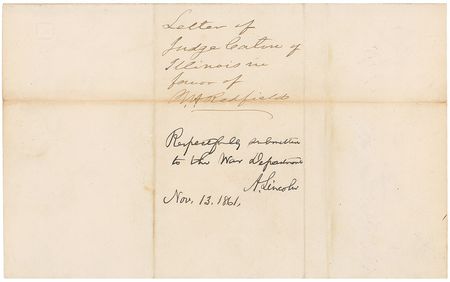 Letter of
Judge Caton of
Illinois in
favor of
Redfield
Respectfully submitted
to the War Department
A. Lincoln
Nov. 13. 1861.